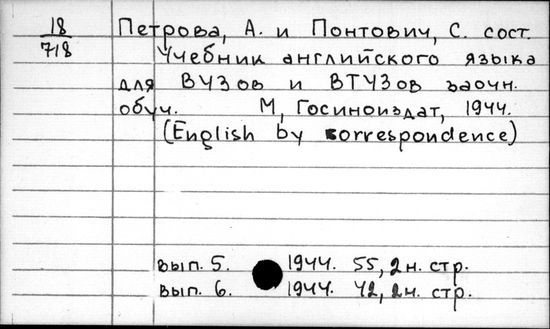 18
718
Петрова, А. и Понтович, С. сост.
Учебник английского языка
для ВУЗов и ВТУЗов заочн.
обуч. М, Госиноиздат, 1944.
(English by correspondence)
вып. 5. 1944. 55, 2н. стр.
вып. 6. 1944. 42, 2н. стр.